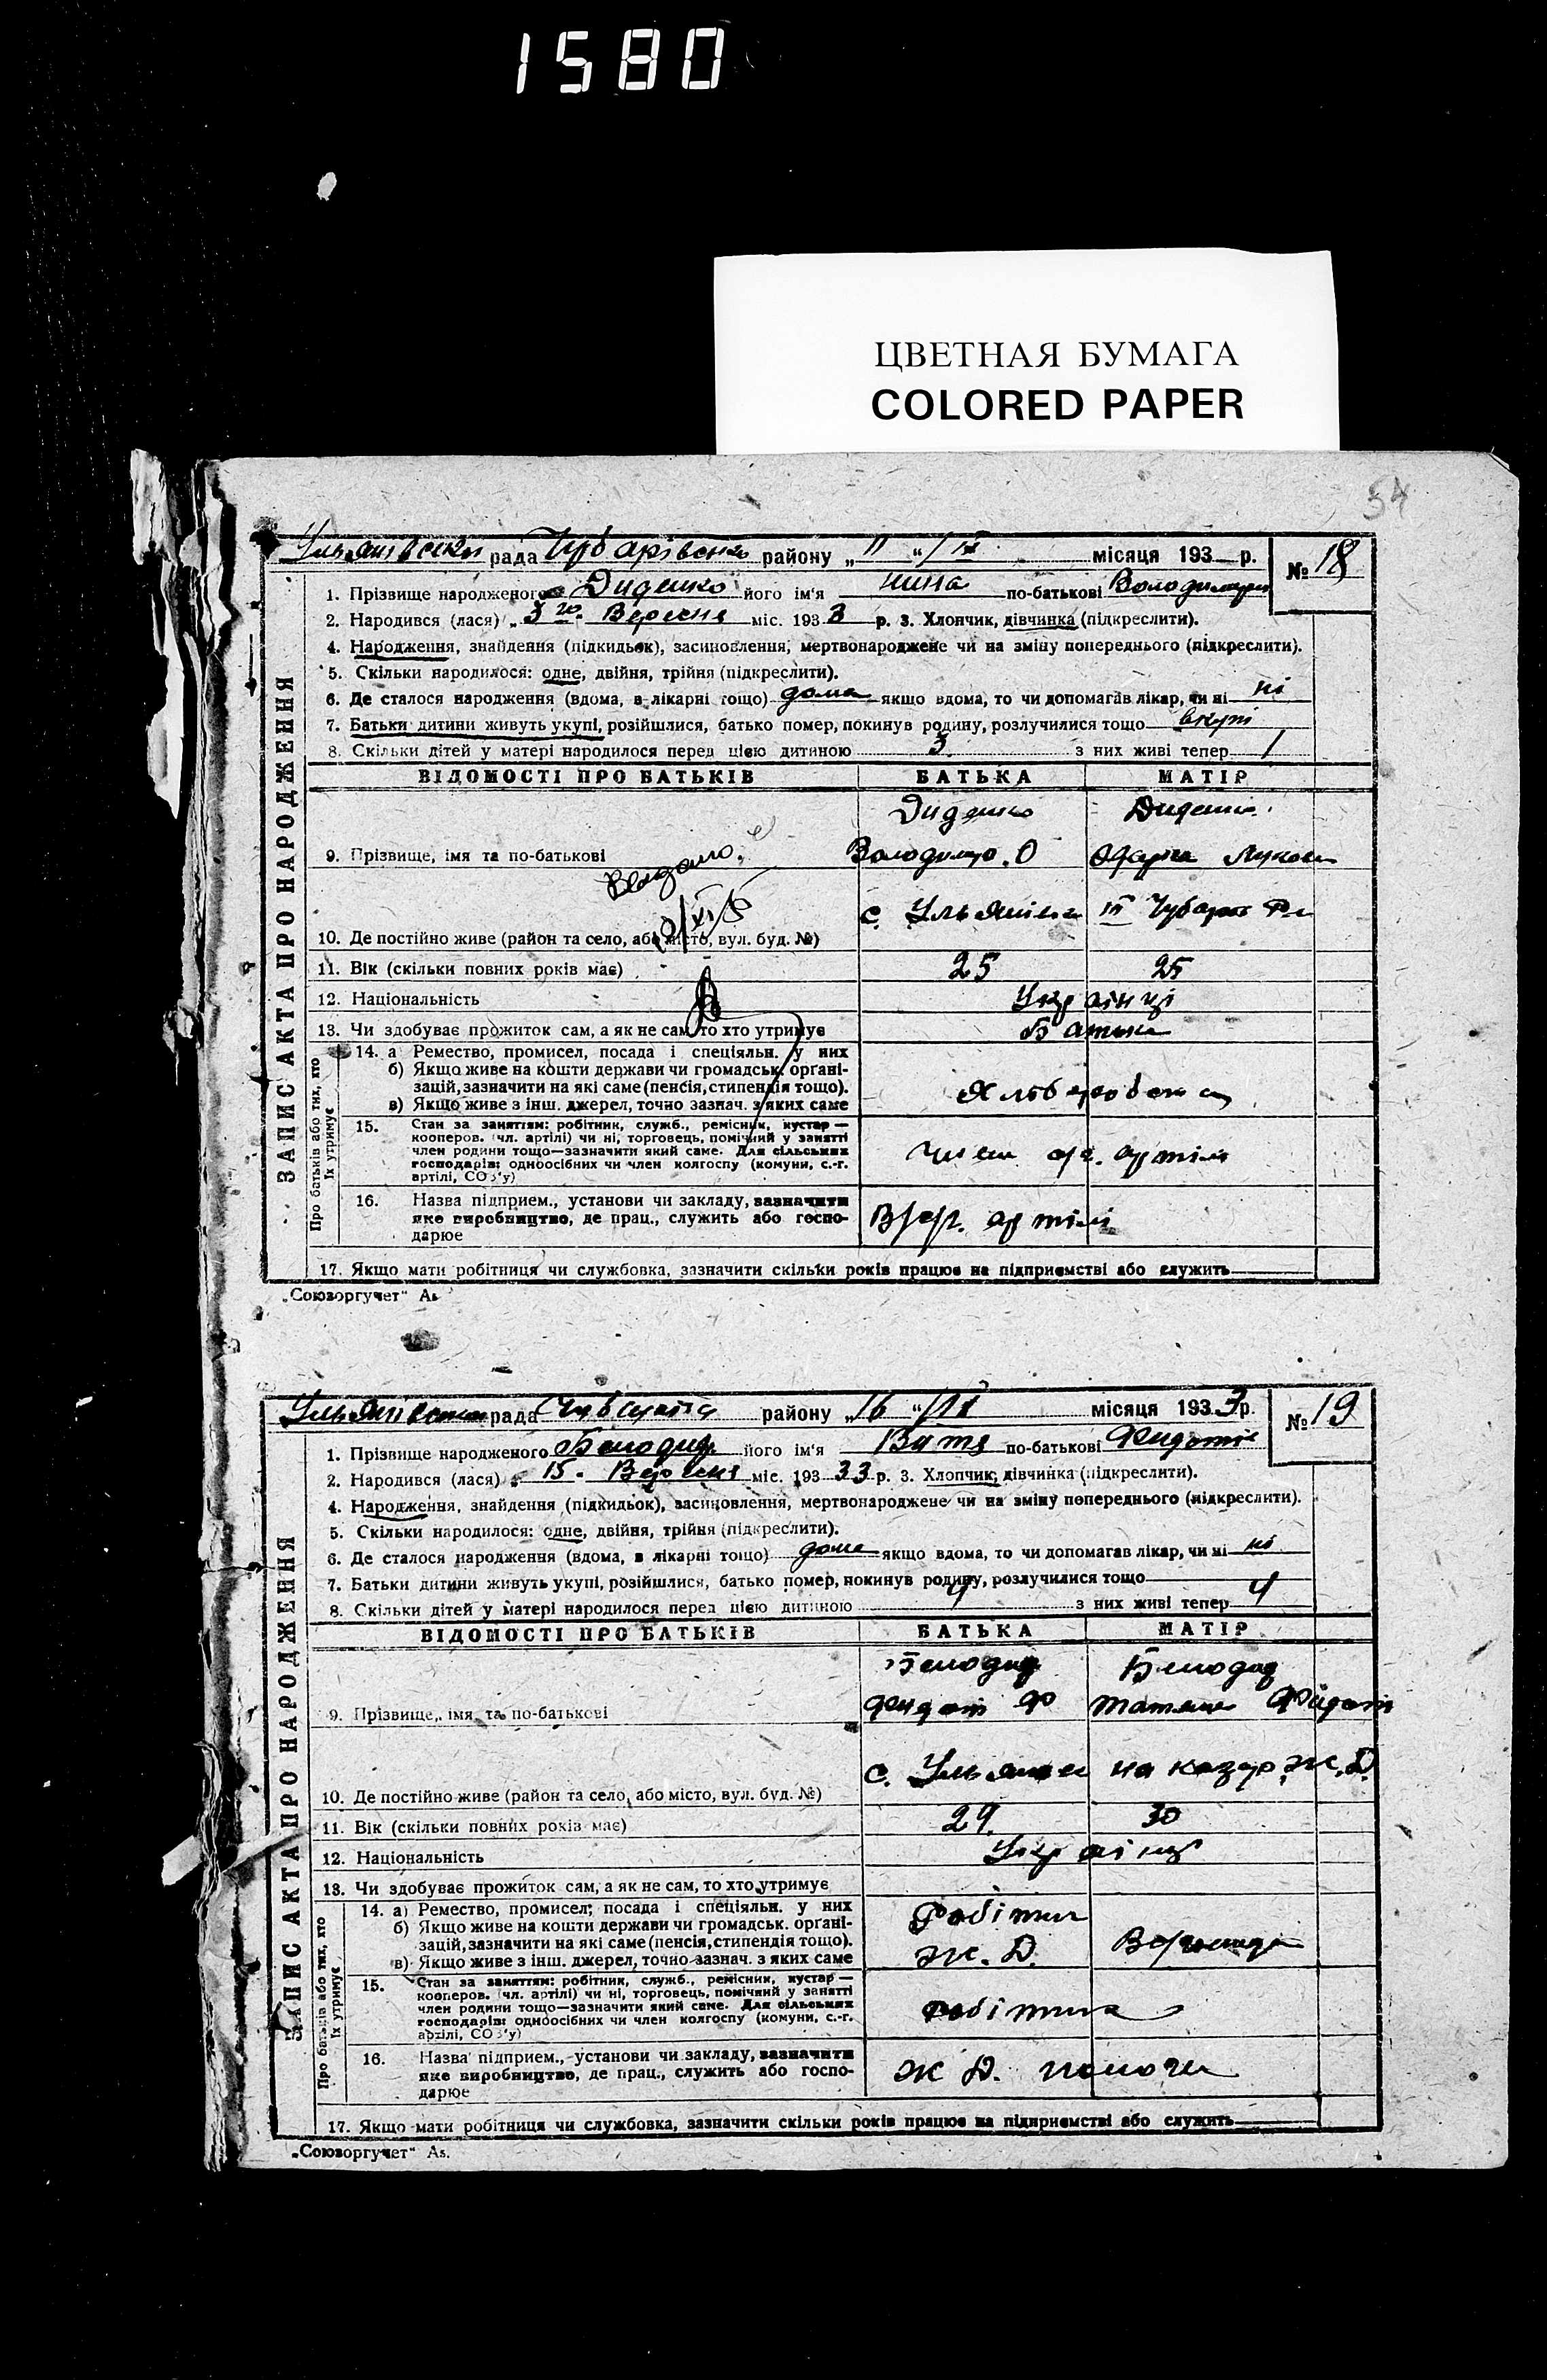 1580
ЦВЕТНАЯ БУМАГА
COLORED PAPER
54
рада Чубарівсько району „11“/IX місяця 193 р. № 18
ЗАПИС АКТА ПРО НАРОДЖЕННЯ
1. Прізвище народженого Диденко його ім'я Нина по-батькові Володимирі
2. Народився (лася) „3го Вересня міс. 1933 р. 3. Хлопчик, дівчинка (підкреслити).
4. Народження, знайдення (підкидьок), засиновлення, мертвонароджене чи на зміну попереднього (підкреслити).
5. Скільки народилося: одне, двійня, трійня (підкреслити).
6. Де сталося народження (вдома, в лікарні тощо) дома якщо вдома, то чи допомагав лікар, чи ні ні
7. Батьки дитини живуть укупі, розійшлися, батько помер, покинув родину, розлучилися тощо вкупі
8. Скільки дітей у матері народилося перед цією дитиною 3 з них живі тепер 1
ВІДОМОСТІ ПРО БАТЬКІВ БАТЬКА МАТІР
Диденко Диденко
9. Прізвище, імя та по-батькові Володимр. О Одарка
10. Де постійно живе (район та село, або місто, вул. буд. №) с. Ульянівка
11. Вік (скільки повних років має) 25 25
12. Національність Українці
13. Чи здобуває прожиток сам, а як не сам, то хто утримує Батьки
Про батьків або тих, хто їх утримує
14. а) Ремество, промисел, посада і спеціяльн. у них
б) Якщо живе на кошти держави чи громадськ. органі-
зацій, зазначити на які саме (пенсія, стипендія тощо).
в) Якщо живе з інш. джерел, точно зазнач. з яких саме
15. Стан за заняттям: робітник, служб., ремісник, кустар —
кооперов. (чл. артілі) чи ні, торговець, помічний у занятті
член родини тощо—зазначити який саме. Для сільських
господарів: одноосібних чи член колгоспу (комуни, с.-г.
артілі, СОЗ'у)
16. Назва підприєм., установи чи закладу, зазначити
яке виробництво, де прац., служить або госпо-
дарює артілі
17. Якщо мати робітниця чи службовка, зазначити скільки років працює на підприємстві або служить
„Союзоргучет“ А5
рада району „16“/IX місяця 1933р. № 19
ЗАПИС АКТА ПРО НАРОДЖЕННЯ
1. Прізвище народженого його ім'я Витя по-батькові
2. Народився (лася) „15. Вересня міс. 1933 р. 3. Хлопчик, дівчинка (підкреслити).
4. Народження, знайдення (підкидьок), засиновлення, мертвонароджене чи на зміну попереднього (підкреслити).
5. Скільки народилося: одне, двійня, трійня (підкреслити).
6. Де сталося народження (вдома, в лікарні тощо) дома якщо вдома, то чи допомагав лікар, чи ні ні
7. Батьки дитини живуть укупі, розійшлися, батько помер, покинув родину, розлучилися тощо
8. Скільки дітей у матері народилося перед цією дитиною 4 з них живі тепер 4
ВІДОМОСТІ ПРО БАТЬКІВ БАТЬКА МАТІР
9. Прізвище, імя та по-батькові
10. Де постійно живе (район та село, або місто, вул. буд. №) с. на казар. Ж.Д.
11. Вік (скільки повних років має) 29. 30
12. Національність Українці
13. Чи здобуває прожиток сам, а як не сам, то хто утримує
Про батьків або тих, хто їх утримує
14. а) Ремество, промисел, посада і спеціяльн. у них Робітник
б) Якщо живе на кошти держави чи громадськ. органі-
зацій, зазначити на які саме (пенсія, стипендія тощо).
в) Якщо живе з інш. джерел, точно зазнач. з яких саме Ж.Д.
15. Стан за заняттям: робітник, служб., ремісник, кустар —
кооперов. (чл. артілі) чи ні, торговець, помічний у занятті
член родини тощо—зазначити який саме. Для сільських
господарів: одноосібних чи член колгоспу (комуни, с.-г.
артілі, СОЗ'у)
16. Назва підприєм., установи чи закладу, зазначити
яке виробництво, де прац., служить або госпо- Ж Д.
дарює
17. Якщо мати робітниця чи службовка, зазначити скільки років працює на підприємстві або служить
„Союзоргучет“ А5.